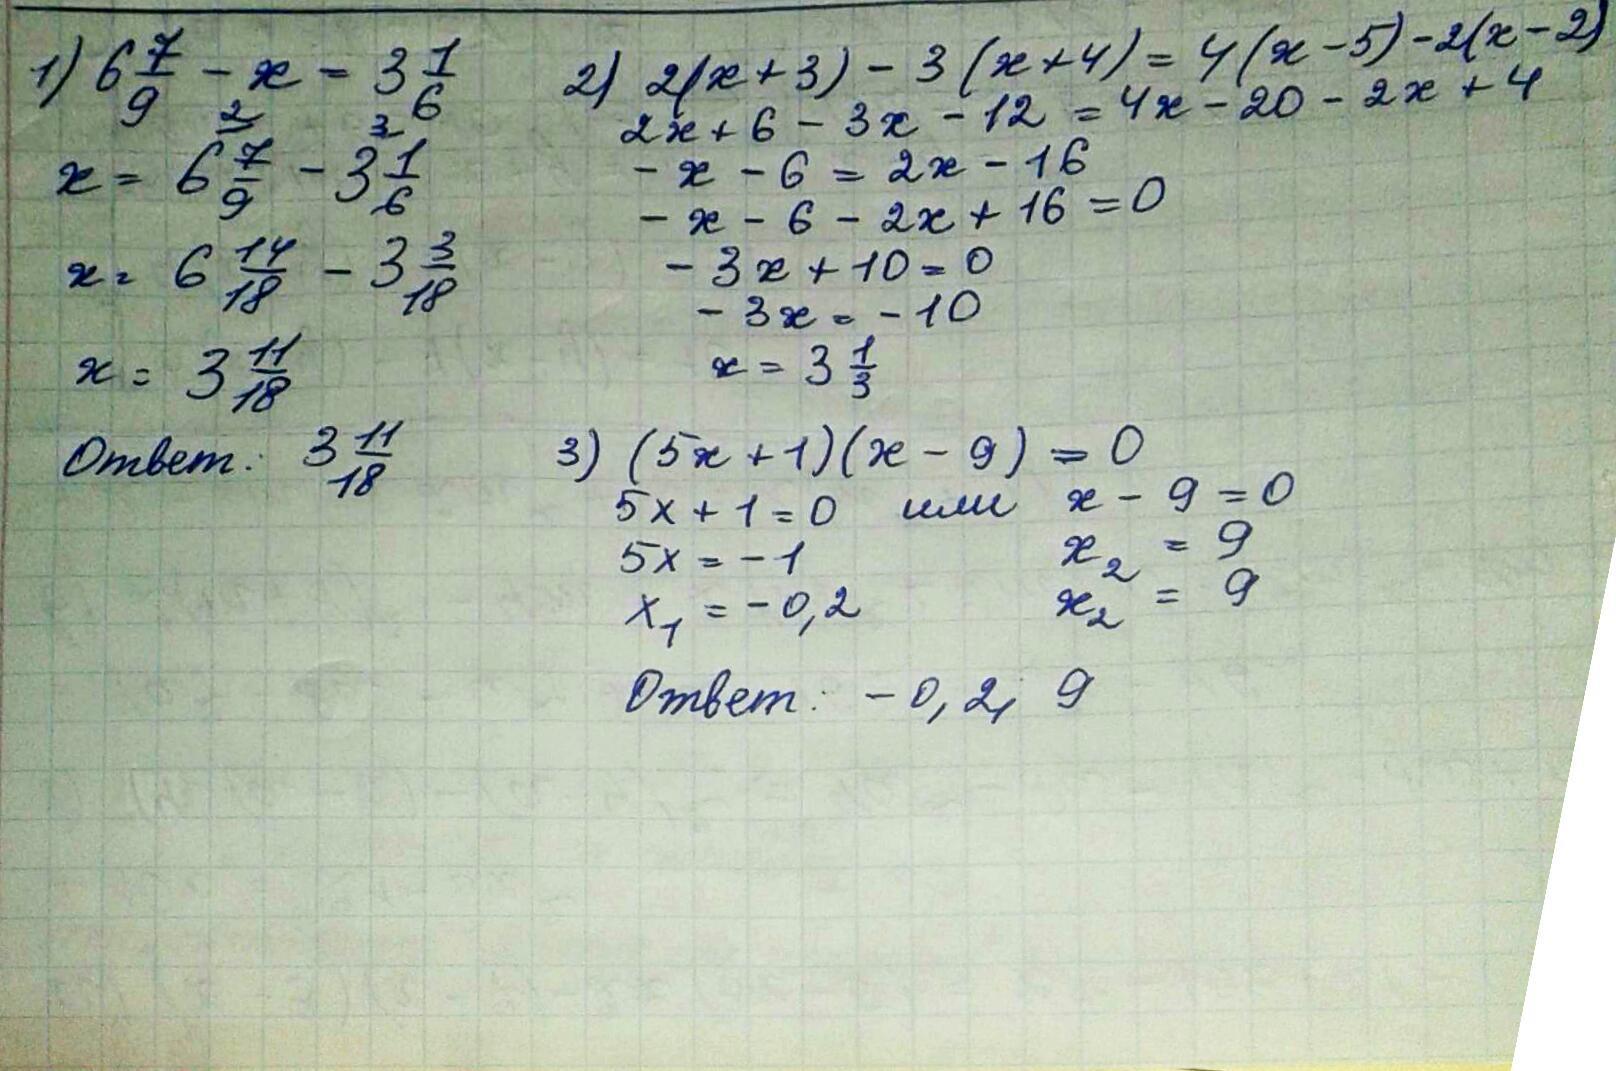 1) 6 7/9 - x = 3 1/6
x = 6 7/9 2 - 3 1/6 3
x = 6 14/18 - 3 3/18
x = 3 11/18
Ответ: 3 11/18
2) 2(x+3) - 3(x+4) = 4(x-5) - 2(x-2)
2x + 6 - 3x - 12 = 4x - 20 - 2x + 4
- x - 6 = 2x - 16
- x - 6 - 2x + 16 = 0
- 3x + 10 = 0
- 3x = - 10
x = 3 1/3
3) (5x + 1)(x - 9) = 0
5x + 1 = 0 или x - 9 = 0
5x = - 1 x₂ = 9
x₁ = - 0,2 x₂ = 9
Ответ: - 0,2; 9